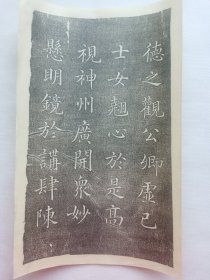 德之觀公卿虛己
士女翹心於是高
視神州廣開眾妙
懸明鏡於講肆陳